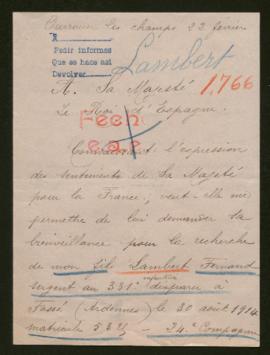 Ouroux les champs 22 février
R
Pedir informes
Que se hace así
Devolver
Lambert
1,766
A. Sa Majesté
Le Roi d'Espagne.
Fech
Connaissant l'expression
des sentiments de Sa Majesté
pour la France, veut-elle me
permettre de lui demander la
bienveillance pour la recherche
de mon fils Lambert Fernand
infanterie
sergent au 331e disparu à
Fossé (Ardennes) le 30 août 1914
matricule 24e Compagnie